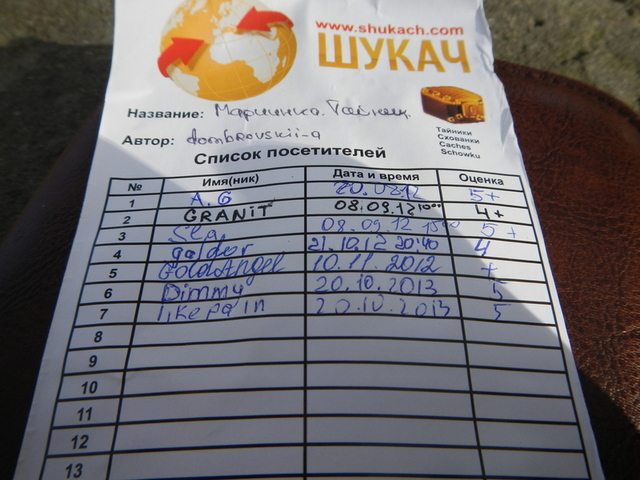 www.shukach.com
ШУКАЧ
Название: Маринкина Тайник.
Автор: dombrovskii-a
Тайники
Сховванки
Caches
Schowku
Список посетителей
№ Имя(ник) Дата и время Оценка
1 A.G 20.0812 5+
2 GRANiT 08.09.12 4+
3 08.09.12 5+
4 galdor 21.10.12 20:40 4
5 GoldAngel 10.11.2012 +
6 Dimmu 20.10.2013 5
7 likepain 20.10.2013 5
8
9
10
11
12
13